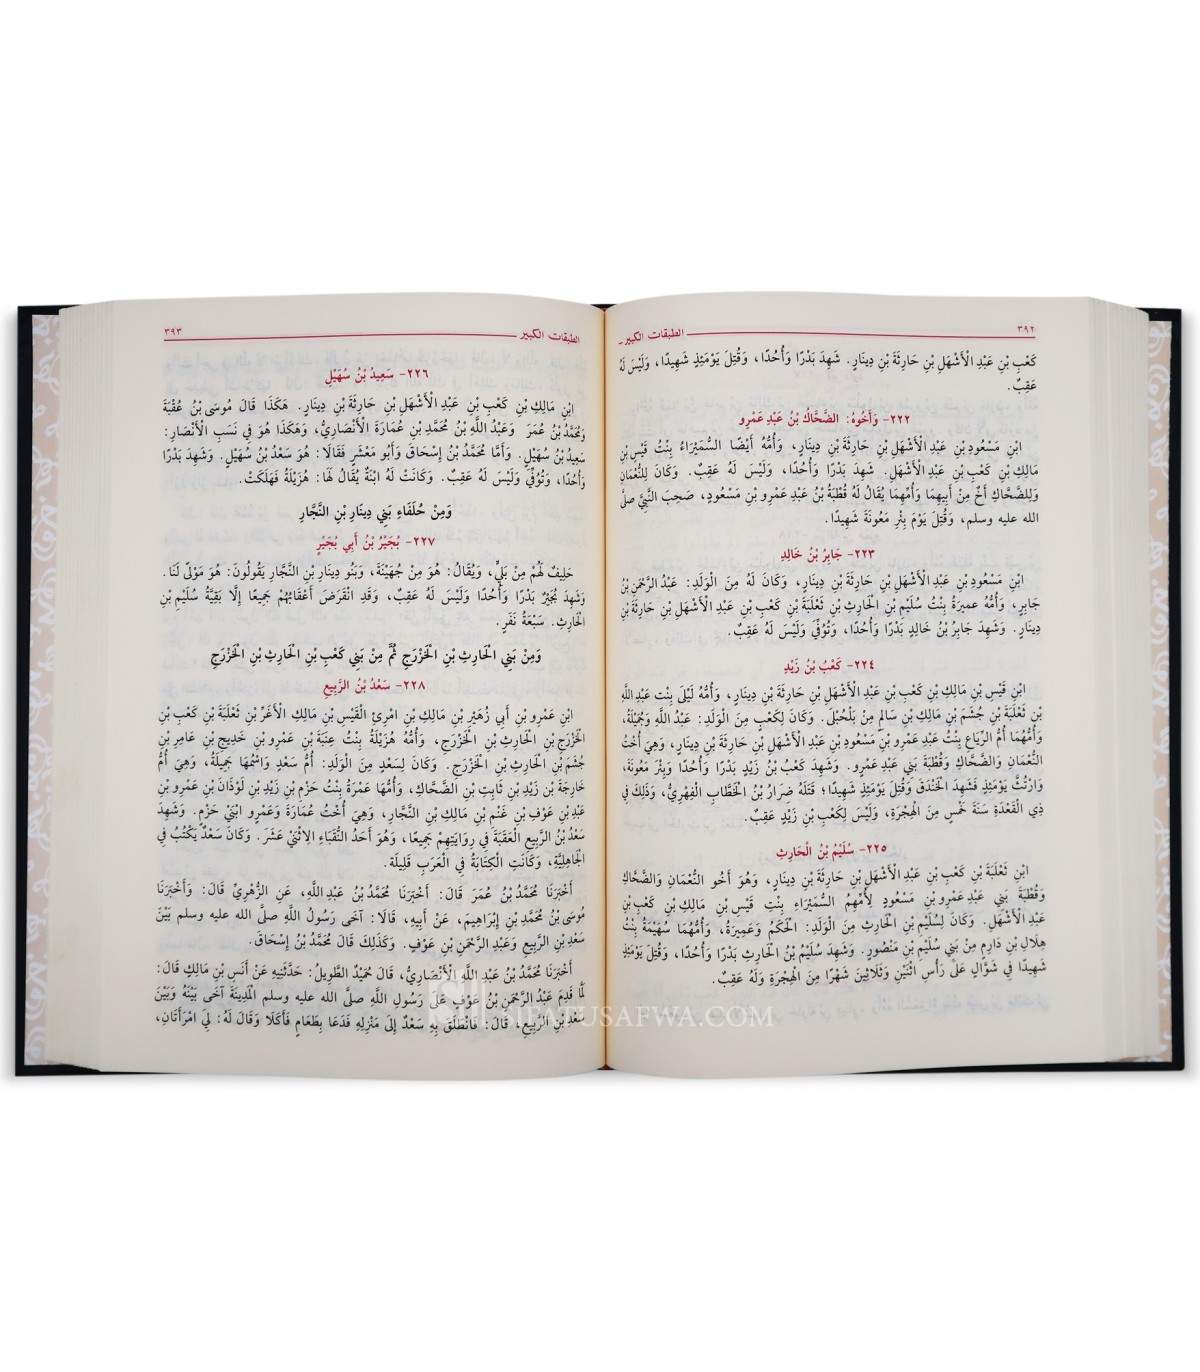 ٣٩٢ الطبقات الكبير
كَعْبِ بْنِ عَبْدِ الْأَشْهَلِ بْنِ حَارِثَةَ بْنِ دِينَارٍ. شَهِدَ بَدْرًا وَأُحُدًا، وَقُتِلَ يَوْمَئِذٍ شَهِيدًا، وَلَيْسَ لَهُ
عَقِبٌ.
٢٢٢- وَأَخُوهُ: الضَّحَّاكُ بْنُ عَبْدِ عَمْرِو
ابْنِ مَسْعُودِ بْنِ عَبْدِ الْأَشْهَلِ بْنِ حَارِثَةَ بْنِ دِينَارٍ، وَأُمُّهُ أَيْضًا السُّمَيْرَاءُ بِنْتُ قَيْسِ بْنِ
مَالِكِ بْنِ كَعْبِ بْنِ عَبْدِ الْأَشْهَلِ. شَهِدَ بَدْرًا وَأُحُدًا، وَلَيْسَ لَهُ عَقِبٌ. وَكَانَ لِلنُّعْمَانِ
وَلِلضَّحَّاكِ أَخٌ مِنْ أَبِيهِمَا وَأُمِّهِمَا يُقَالُ لَهُ قُطْبَةُ بْنُ عَبْدِ عَمْرِو بْنِ مَسْعُودٍ، صَحِبَ النَّبِيَّ صلَّى
الله عليه وسلم، وَقُتِلَ يَوْمَ بِئْرِ مَعُونَةَ شَهِيدًا.
٢٢٣- جَابِرُ بْنُ خَالِدِ
ابْنِ مَسْعُودِ بْنِ عَبْدِ الْأَشْهَلِ بْنِ حَارِثَةَ بْنِ دِينَارٍ، وَكَانَ لَهُ مِنَ الْوَلَدِ: عَبْدُ الرَّحْمَنِ بْنُ
جَابِرٍ، وَأُمُّهُ عميرَةُ بِنْتُ سُلَيْمِ بْنِ الْحَارِثِ بْنِ ثَعْلَبَةَ بْنِ كَعْبِ بْنِ عَبْدِ الْأَشْهَلِ بْنِ حَارِثَةَ بْنِ
دِينَارٍ. وَشَهِدَ جَابِرُ بْنُ خَالِدٍ بَدْرًا وَأُحُدًا، وَتُوُفِّيَ وَلَيْسَ لَهُ عَقِبٌ.
٢٢٤- كَعْبُ بْنُ زَيْدِ
ابْنِ قَيْسِ بْنِ مَالِكِ بْنِ كَعْبِ بْنِ عَبْدِ الْأَشْهَلِ بْنِ حَارِثَةَ بْنِ دِينَارٍ، وَأُمُّهُ لَيْلَى بِنْت عَبدِ اللَّهِ
بْنِ ثَعْلَبَةَ بْنِ جُشَمَ بْنِ مَالِكِ بْنِ سَالِمٍ مِنْ بَلْحُبْلَى. وَكَانَ لِكَعْبٍ مِنَ الْوَلَدِ: عَبْدُ اللَّهِ وَجَمِيلَةُ،
وَأُمُّهُمَا أُمُّ الرِّيَاعِ بِنْتُ عَبْدِ عَمْرِو بْنِ مَسْعُودِ بْنِ عَبْدِ الْأَشْهَلِ بْنِ حَارِثَةَ بْنِ دِينَارٍ، وَهِيَ أُخْتُ
النُّعْمَانِ وَالضَّحَّاكِ وَقُطْبَةَ بَنِي عَبْدِ عَمْرٍو. وَشَهِدَ كَعْبُ بْنُ زَيْدٍ بَدْرًا وَأُحُدًا وَبِئْرَ مَعُونَةَ،
وَارْتُثَّ يَوْمَئِذٍ فَشَهِدَ الْخَنْدَقَ وَقُتِلَ يَوْمَئِذٍ شَهِيدًا؛ قَتَلَهُ ضِرَارُ بْنُ الْخَطَّابِ الْفِهْرِيُّ، وَذَلِكَ فِي
ذِي الْقَعْدَةِ سَنَةَ خَمْسٍ مِنَ الْهِجْرَةِ، وَلَيْسَ لِكَعْبِ بْنِ زَيْدٍ عَقِبٌ.
٢٢٥- سُلَيْمُ بْنُ الْحَارِثِ
ابْنِ ثَعْلَبَةَ بْنِ كَعْبِ بْنِ عَبْدِ الْأَشْهَلِ بْنِ حَارِثَةَ بْنِ دِينَارٍ، وَهُوَ أَخُو النُّعْمَانِ وَالضَّحَّاكِ
وَقُطْبَةَ بَنِي عَبْدِ عَمْرِو بْنِ مَسْعُودٍ لِأُمِّهِمُ السُّمَيْرَاءِ بِنْتِ قَيْسِ بْنِ مَالِكِ بْنِ كَعْبِ بْنِ
عَبْدِ الْأَشْهَلِ. وَكَانَ لِسُلَيْمِ بْنِ الْحَارِثِ مِنَ الْوَلَدِ: الْحَكَمُ وَعَمِيرَةُ، وَأُمُّهُمَا سُهَيْمَةُ بِنْتُ
هِلَالِ بْنِ دَارِمٍ مِنْ بَنِي سُلَيْمِ بْنِ مَنْصُورٍ. وَشَهِدَ سُلَيْمُ بْنُ الْحَارِثِ بَدْرًا وَأُحُدًا، وَقُتِلَ يَوْمَئِذٍ
شَهِيدًا فِي شَوَّالٍ عَلَى رَأْسِ اثْنَيْنِ وَثَلَاثِينَ شَهْرًا مِنَ الْهِجْرَةِ وَلَهُ عَقِبٌ.
الطبقات الكبير ٣٩٣
٢٢٦- سَعِيدُ بْنُ سُهَيْلِ
ابْنِ مَالِكِ بْنِ كَعْبِ بْنِ عَبْدِ الْأَشْهَلِ بْنِ حَارِثَةَ بْنِ دِينَارٍ. هَكَذَا قَالَ مُوسَى بْنُ عُقْبَةَ
وَمُحَمَّدُ بْنُ عُمَرَ وَعَبْدُ اللَّهِ بْنُ مُحَمَّدِ بْنِ عُمَارَةَ الْأَنْصَارِيُّ، وَهَكَذَا هُوَ فِي نَسَبِ الْأَنْصَارِ:
سَعِيدُ بْنُ سُهَيْلٍ. وَأَمَّا مُحَمَّدُ بْنُ إِسْحَاقَ وَأَبُو مَعْشَرٍ فَقَالَا: هُوَ سَعْدُ بْنُ سُهَيْلٍ. وَشَهِدَ بَدْرًا
وَأُحُدًا، وَتُوُفِّيَ وَلَيْسَ لَهُ عَقِبٌ. وَكَانَتْ لَهُ ابْنَةٌ يُقَالُ لَهَا: هُزَيْلَةُ فَهَلَكَتْ.
وَمِنْ حُلَفَاءِ بَنِي دِينَارِ بْنِ النَّجَّارِ
٢٢٧- بُجَيْرُ بْنُ أَبِي بُجَيْرٍ
حَلِيفٌ لَهُمْ مِنْ بَلِيٍّ، وَيُقَالُ: هُوَ مِنْ جُهَيْنَةَ، وَبَنُو دِينَارِ بْنِ النَّجَّارِ يَقُولُونَ: هُوَ مَوْلًى لَنَا.
وَشَهِدَ بُجَيْرٌ بَدْرًا وَأُحُدًا وَلَيْسَ لَهُ عَقِبٌ، وَقَدِ انْقَرَضَ أَعْقَابُهُمْ جَمِيعًا إِلَّا بَقِيَّةُ سُلَيْمِ بْنِ
الْحَارِثِ. سَبْعَةُ نَفَرٍ.
وَمِنْ بَنِي الْحَارِثِ بْنِ الْخَزْرَجِ ثُمَّ مِنْ بَنِي كَعْبِ بْنِ الْحَارِثِ بْنِ الْخَزْرَجِ
٢٢٨- سَعْدُ بْنُ الرَّبِيعِ
ابْنِ عَمْرِو بْنِ أَبِي زُهَيْرِ بْنِ مَالِكِ بْنِ امْرِئِ الْقَيْسِ بْنِ مَالِكِ الْأَغَرِّ بْنِ ثَعْلَبَةَ بْنِ كَعْبِ بْنِ
الْخَزْرَجِ بْنِ الْحَارِثِ بْنِ الْخَزْرَجِ، وَأُمُّهُ هُزَيْلَةُ بِنْتُ عِنَبَةَ بْنِ عَمْرِو بْنِ خَدِيجِ بْنِ عَامِرِ بْنِ
جُشَمَ بْنِ الْحَارِثِ بْنِ الْخَزْرَجِ. وَكَانَ لِسَعْدٍ مِنَ الْوَلَدِ: أُمُّ سَعْدٍ وَاسْمُهَا جَمِيلَةُ، وَهِيَ أُمُّ
خَارِجَةَ بْنِ زَيْدِ بْنِ ثَابِتِ بْنِ الضَّحَّاكِ، وَأُمُّهَا عَمْرَةُ بِنْتُ حَزْمِ بْنِ زَيْدِ بْنِ لَوْذَانَ بْنِ عَمْرِو بْنِ
عَبْدِ بْنِ عَوْفِ بْنِ غَنْمِ بْنِ مَالِكِ بْنِ النَّجَّارِ، وَهِيَ أُخْتُ عُمَارَةَ وَعَمْرٍو ابْنَيْ حَزْمٍ. وَشَهِدَ
سَعْدُ بْنُ الرَّبِيعِ الْعَقَبَةَ فِي رِوَايَتِهِمْ جَمِيعًا، وَهُوَ أَحَدُ النُّقَبَاءِ الِاثْنَيْ عَشَرَ. وَكَانَ سَعْدٌ يَكْتُبُ فِي
الْجَاهِلِيَّةِ، وَكَانَتِ الْكِتَابَةُ فِي الْعَرَبِ قَلِيلَةً.
أَخْبَرَنَا مُحَمَّدُ بْنُ عُمَرَ قَالَ: أَخْبَرَنَا مُحَمَّدُ بْنُ عَبْدِ اللَّهِ، عَنِ الزُّهْرِيِّ قَالَ: وَأَخْبَرَنَا
مُوسَى بْنُ مُحَمَّدِ بْنِ إِبْرَاهِيمَ، عَنْ أَبِيهِ، قَالَا: آخَى رَسُولُ اللَّهِ صلَّى الله عليه وسلم بَيْنَ
سَعْدِ بْنِ الرَّبِيعِ وَعَبْدِ الرَّحْمَنِ بْنِ عَوْفٍ. وَكَذَلِكَ قَالَ مُحَمَّدُ بْنُ إِسْحَاقَ.
أَخْبَرَنَا مُحَمَّدُ بْنُ عَبْدِ اللَّهِ الْأَنْصَارِيُّ، قَالَ حُمَيْدٌ الطَّوِيلُ: حَدَّثَنِيهِ عَنْ أَنَسِ بْنِ مَالِكٍ قَالَ:
لَمَّا قَدِمَ عَبْدُ الرَّحْمَنِ بْنُ عَوْفٍ عَلَى رَسُولِ اللَّهِ صلَّى الله عليه وسلم الْمَدِينَةَ آخَى بَيْنَهُ وَبَيْنَ
سَعْدِ بْنِ الرَّبِيعِ، قَالَ: فَانْطَلَقَ بِهِ سَعْدٌ إِلَى مَنْزِلِهِ فَدَعَا بِطَعَامٍ فَأَكَلَا وَقَالَ لَهُ: لِيَ امْرَأَتَانِ،
SIFATUSAFWA.COM